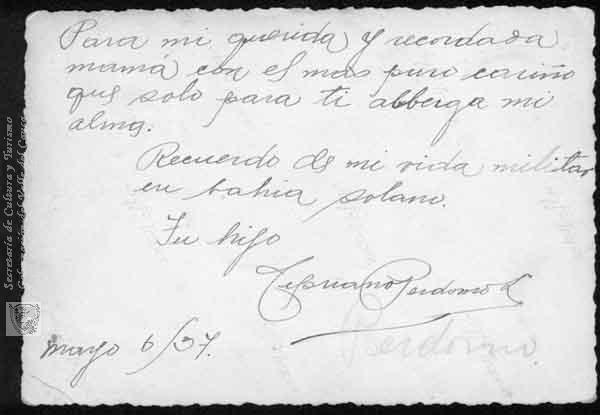 Para mi querida y recordada
mamá con el mas puro cariño
que solo para ti alberga mi
alma.
Recuerdo de mi vida militar
en bahia solano.
Tu hijo
Cipriano Perdomo L
Perdomo
mayo 6/37.
Secretaría de Cultura y Turismo
Gobernación del Valle del Cauca